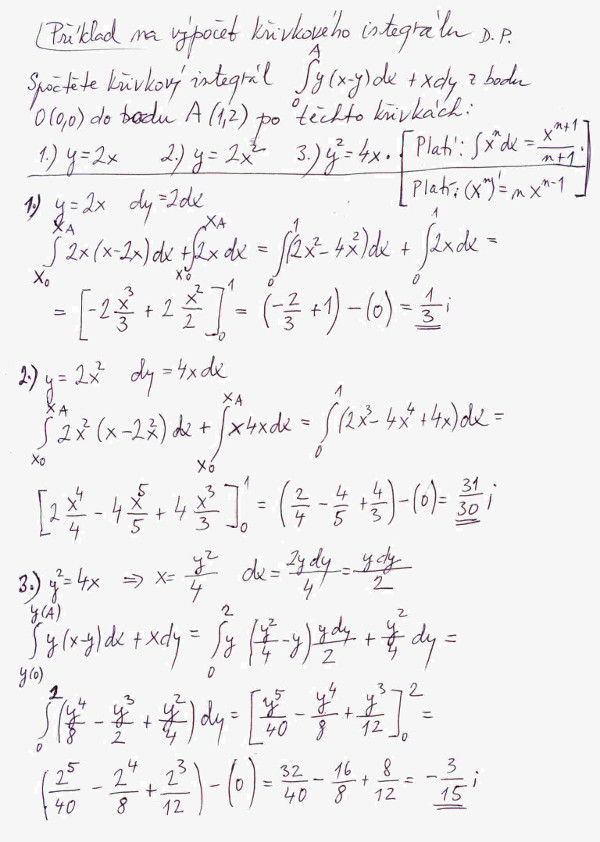 Příklad na výpočet křivkového integrálu D.P.
Spočtěte křivkový integrál ∫₀ᴬ y(x-y)dx + xdy z bodu
O(0,0) do bodu A(1,2) po těchto křivkách:
1.) y=2x 2.) y=2x² 3.) y²=4x. [Platí: ∫xⁿdx = xⁿ⁺¹/n+1
Platí: (xⁿ)' = n xⁿ⁻¹]
1.) y=2x dy=2dx
∫_{x₀}^{x_A} 2x(x-2x)dx + ∫_{x₀}^{x_A} 2x dx = ∫₀¹(2x²-4x²)dx + ∫₀¹ 2x dx =
= [-2 x³/3 + 2 x²/2]₀¹ = (-2/3 + 1) - (0) = 1/3 i
2.) y=2x² dy=4xdx
∫_{x₀}^{x_A} 2x²(x-2x²)dx + ∫_{x₀}^{x_A} x4xdx = ∫₀¹(2x³-4x⁴+4x)dx =
[2 x⁴/4 - 4 x⁵/5 + 4 x³/3]₀¹ = (2/4 - 4/5 + 4/3) - (0) = 31/30 i
3.) y²=4x ⇒ x= y²/4 dx= 2ydy/4 = ydy/2
∫_{y(0)}^{y(A)} y(x-y)dx + xdy = ∫₀² y (y²/4 - y) ydy/2 + y²/4 dy =
∫₀² (y⁴/8 - y³/2 + y²/4) dy = [y⁵/40 - y⁴/8 + y³/12]₀² =
(2⁵/40 - 2⁴/8 + 2³/12) - (0) = 32/40 - 16/8 + 8/12 = - 3/15 i